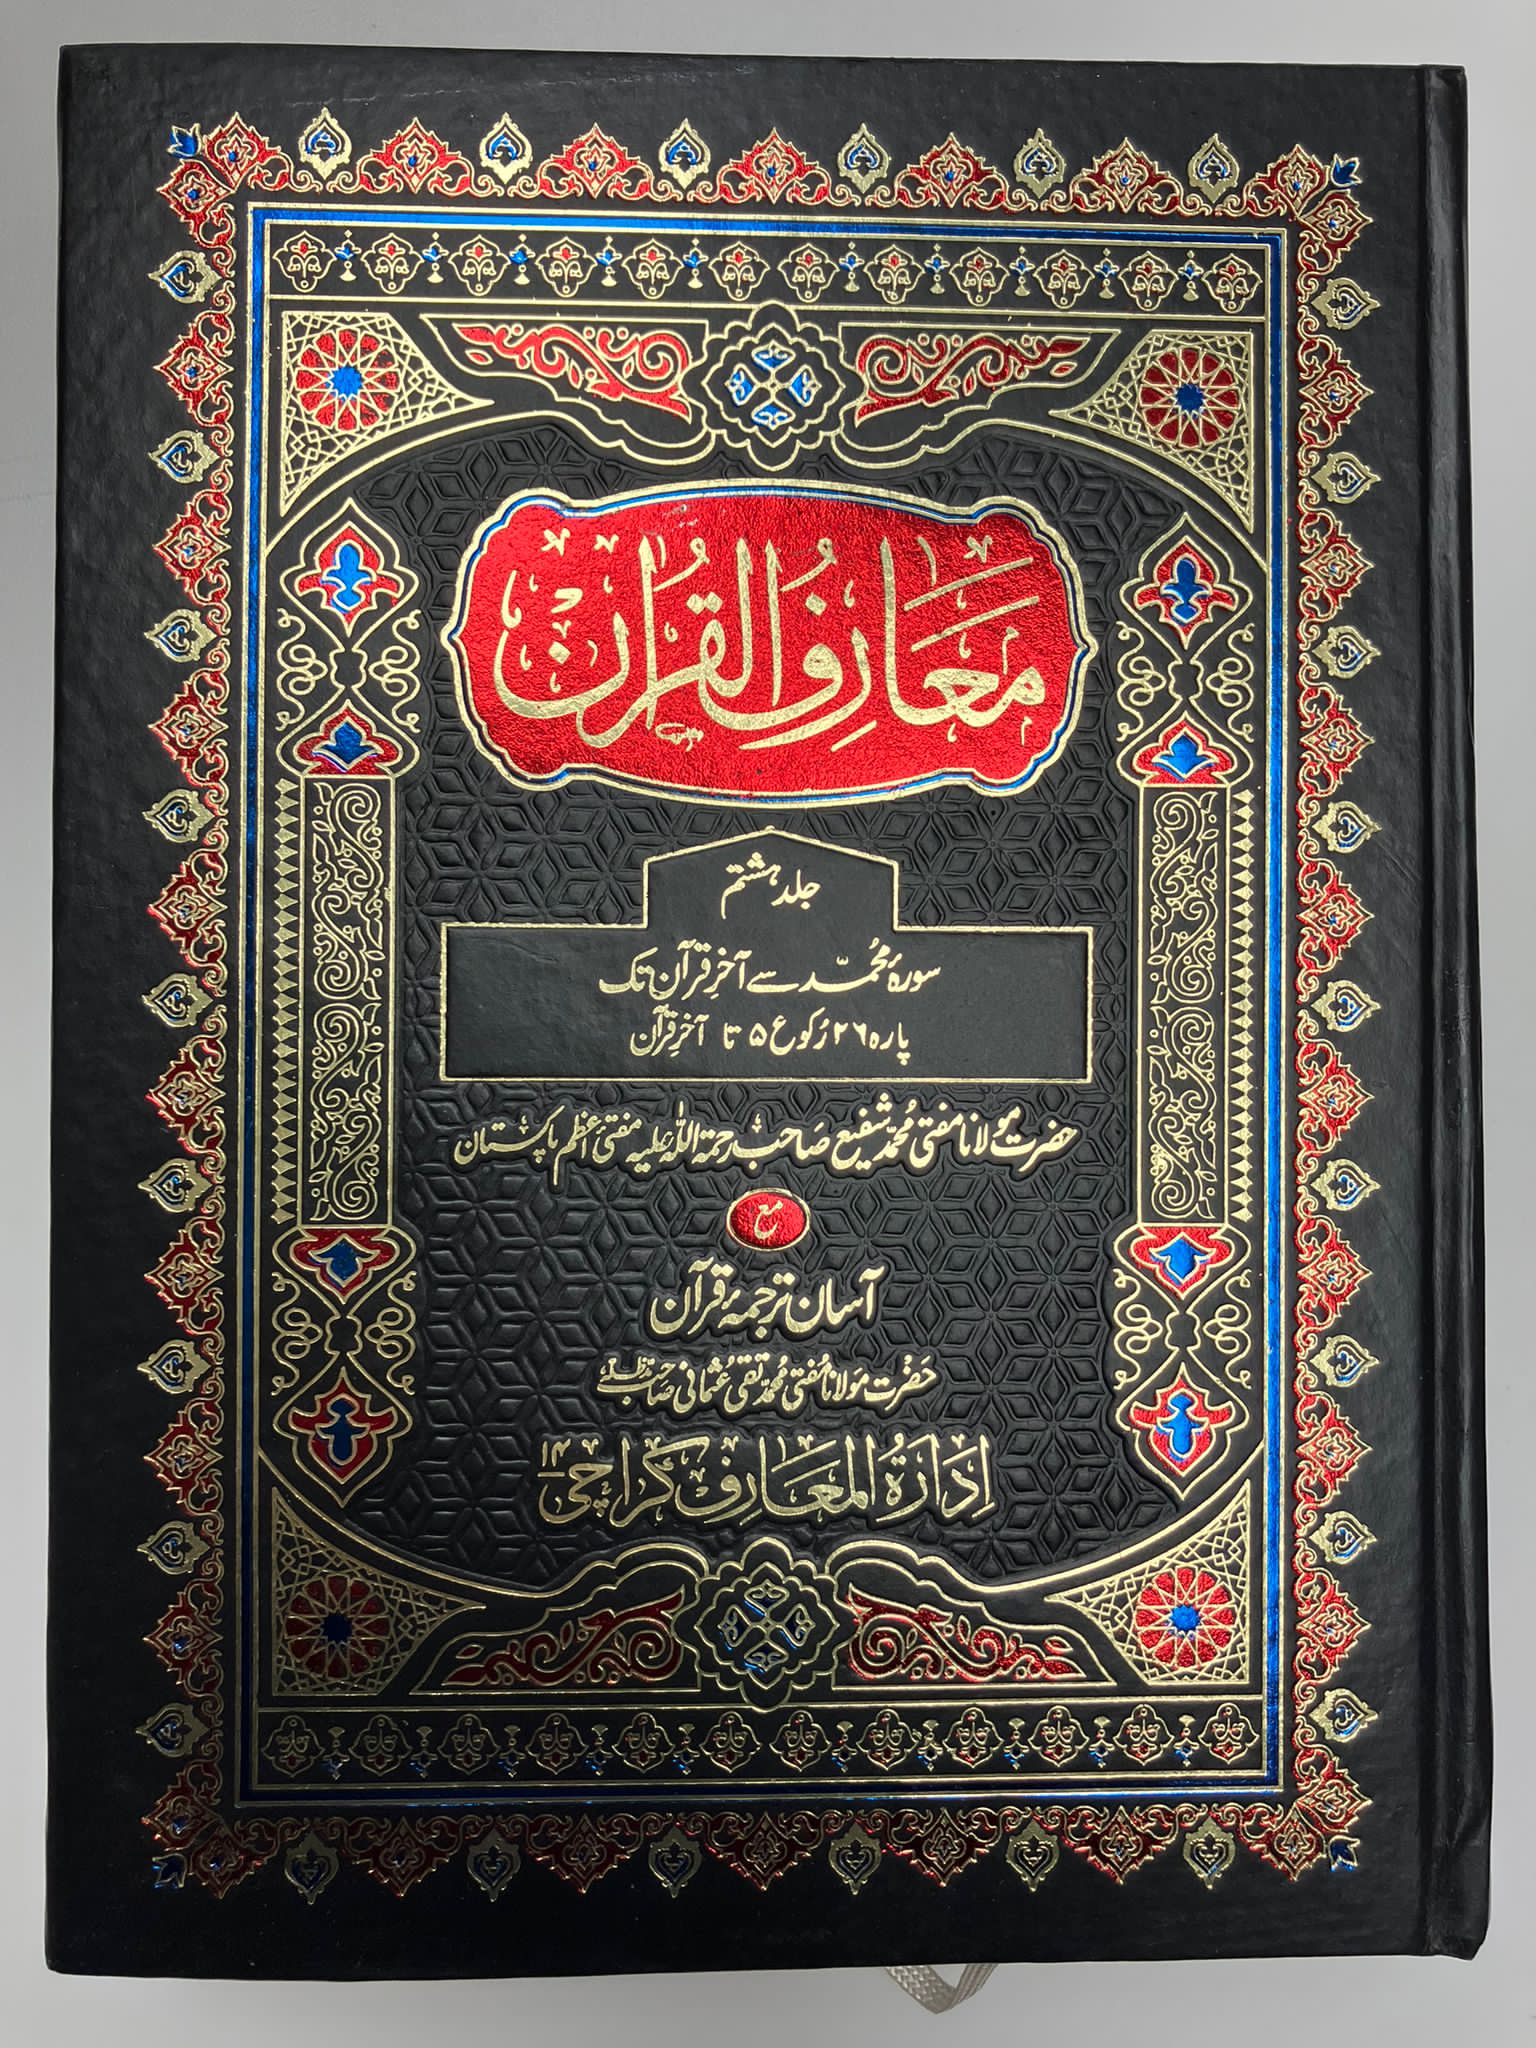 مَعَارِفُ القُرآن
جلد ہشتم
سورۂ محمّد سے آخرِ قرآن تک
پارہ ۲۶ رُکوع ۵ تا آخرِ قرآن
حضرت مولانا مفتی محمّد شفیع صَاحبؒ رحمۃ اللہ علیہ مفتیٔ اعظم پاکستان
مع
آسان ترجمۂ قرآن
حَضْرت مَولانا مُفتی مُحمّد تقی عُثمانی صَاحب مدظلہم
اِدَارَۃُ المَعَارِف کراچی ۱۴